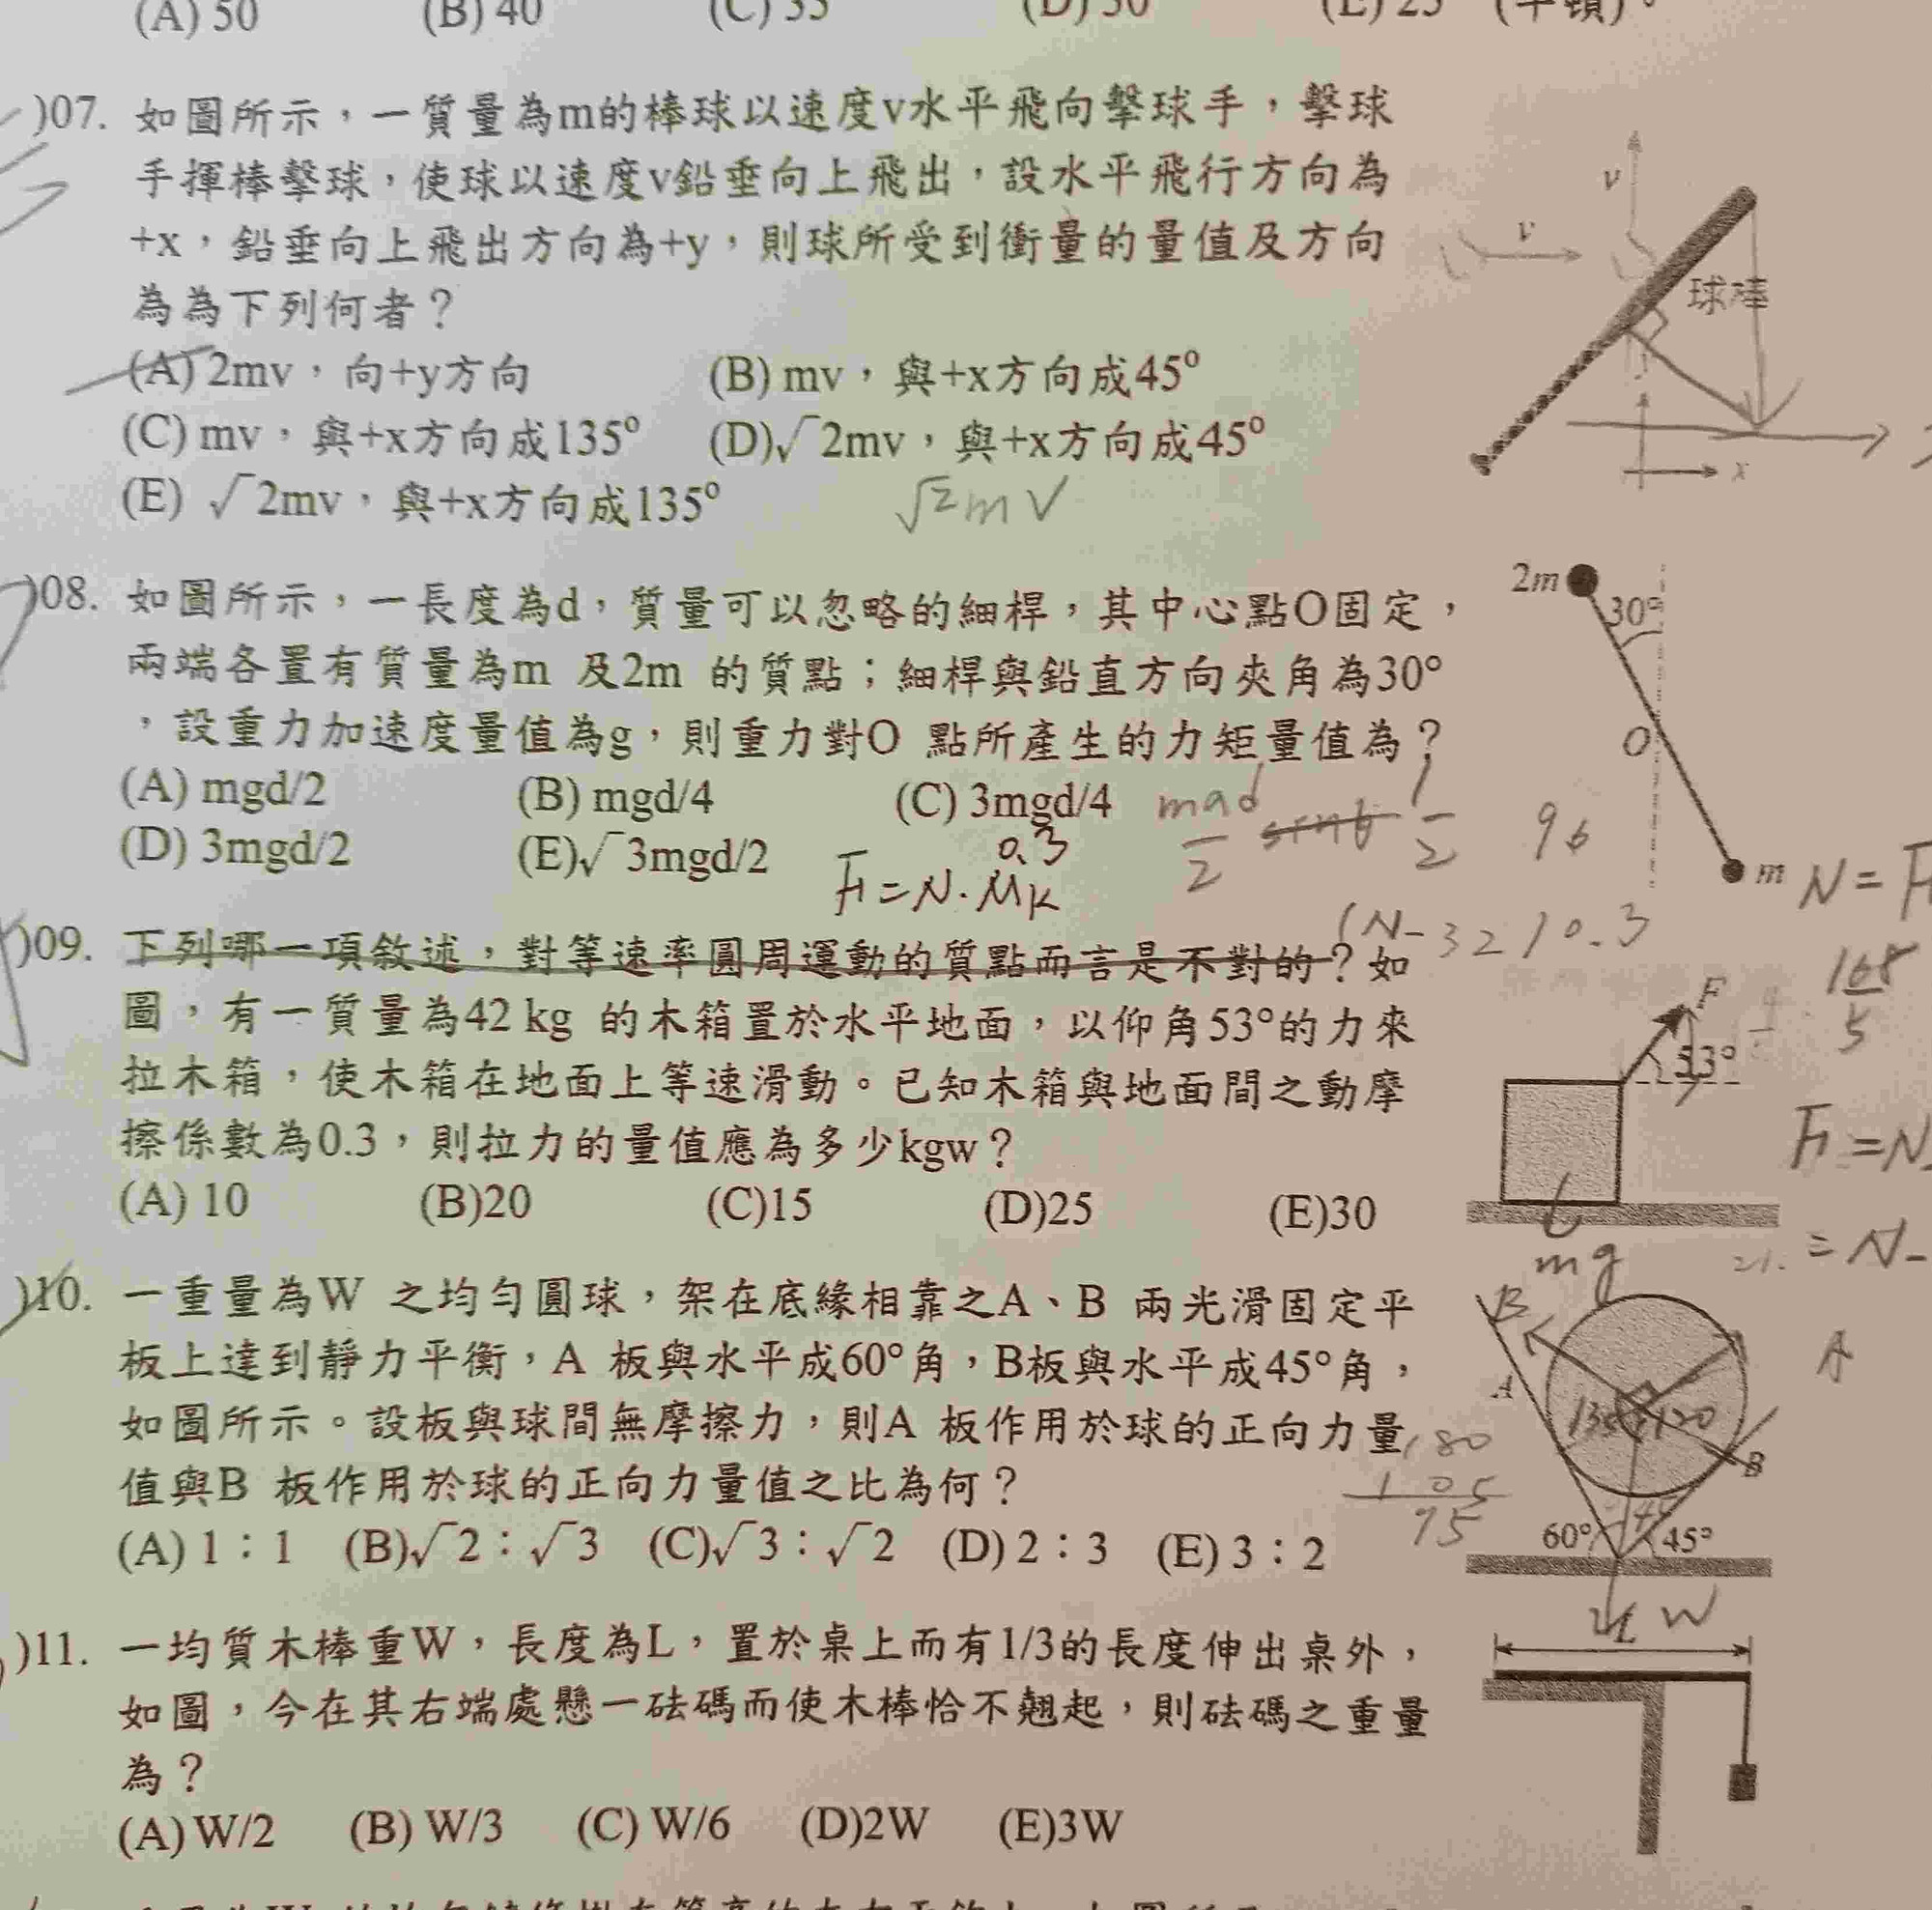 (A) 50 (B) 40 (C) 35 (D) 30 (E) 25 (牛頓)。
)07. 如圖所示，一質量為m的棒球以速度v水平飛向擊球手，擊球
手揮棒擊球，使球以速度v鉛垂向上飛出，設水平飛行方向為
+x，鉛垂向上飛出方向為+y，則球所受到衝量的量值及方向
為為下列何者？
(A) 2mv，向+y方向 (B) mv，與+x方向成45°
(C) mv，與+x方向成135° (D)√2mv，與+x方向成45°
(E) √2mv，與+x方向成135°
√2 m V
v
v
球棒
x
)08. 如圖所示，一長度為d，質量可以忽略的細桿，其中心點O固定，
兩端各置有質量為m 及2m 的質點；細桿與鉛直方向夾角為30°
，設重力加速度量值為g，則重力對O 點所產生的力矩量值為？
(A) mgd/2 (B) mgd/4 (C) 3mgd/4
(D) 3mgd/2 (E)√3mgd/2
2m
30°
O
m
0.3
(N-32)0.3
168
5
)09. 下列哪一項敘述，對等速率圓周運動的質點而言是不對的？如
圖，有一質量為42 kg 的木箱置於水平地面，以仰角53°的力來
拉木箱，使木箱在地面上等速滑動。已知木箱與地面間之動摩
擦係數為0.3，則拉力的量值應為多少kgw？
(A) 10 (B)20 (C)15 (D)25 (E)30
F
53°
mg
)10. 一重量為W 之均勻圓球，架在底緣相靠之A、B 兩光滑固定平
板上達到靜力平衡，A 板與水平成60°角，B板與水平成45°角，
如圖所示。設板與球間無摩擦力，則A 板作用於球的正向力量
值與B 板作用於球的正向力量值之比為何？
(A) 1：1 (B)√2：√3 (C)√3：√2 (D) 2：3 (E) 3：2
B
A
A
135 120
B
180
105
75
60° 45°
W
)11. 一均質木棒重W，長度為L，置於桌上而有1/3的長度伸出桌外，
如圖，今在其右端處懸一砝碼而使木棒恰不翹起，則砝碼之重量
為？
(A) W/2 (B) W/3 (C) W/6 (D)2W (E)3W
L